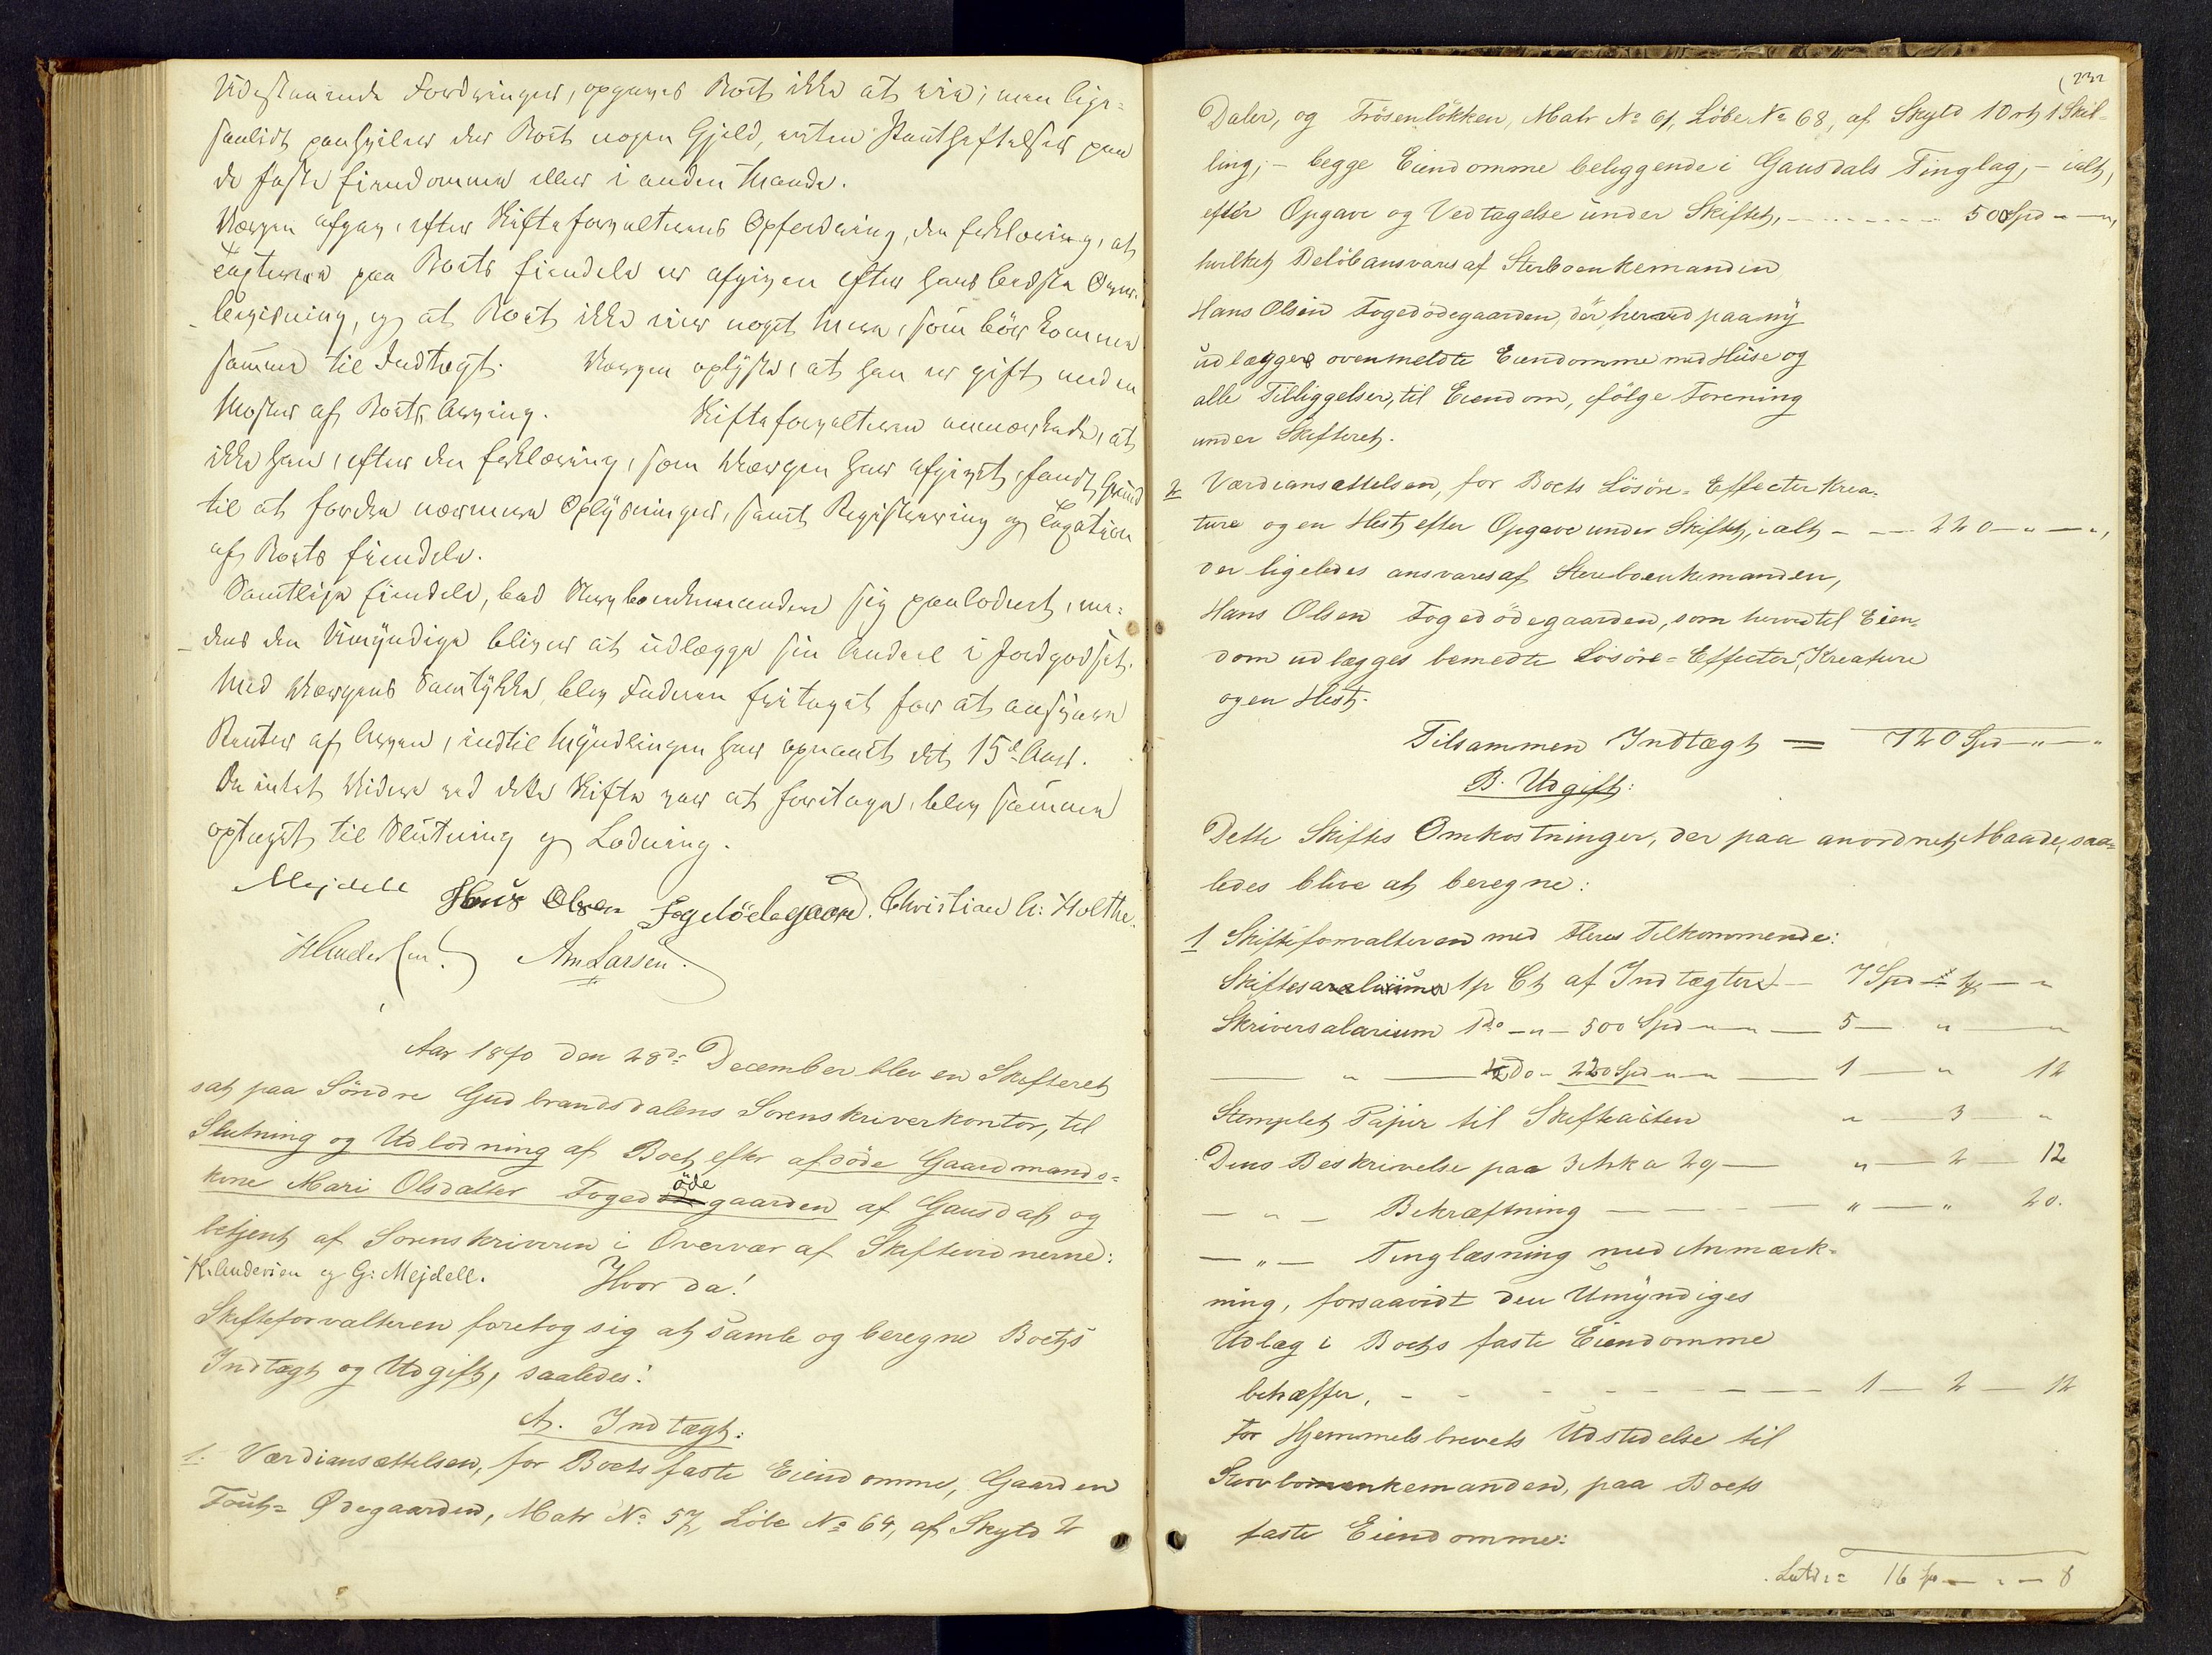 Udestaaende Fordringer, opgaves Boet ikke at eie; men lige-
saalidt paahviler der Boet nogen Gjeld, enten Pantheftelser paa
de faste Eiendomme eller i anden Maade.
Værgen afgav, efter Skifteforvalterens Opfordring, den Erklæring, at
Taxterne paa Boets Eiendele er afgivne efter hans bedste Over-
beviisning, og at Boet ikke eier noget mere, som bør komme
samme til Indtægt. Værgen oplyste, at han er gift med en
Moster af Boets Arving. Skifteforvalteren anmærkede, at
ikke han, efter den Erklæring, som Værgen har afgivet, fandt Grund
til at fordre nærmere Oplysninger, samt Registrering og Taxation
af Boets Eiendele.
Samtlige Eiendele, bad Stervboenkemanden sig paaloddet, me-
dens den Umyndige bliver at udlægge sin Andeel i Jordgodset.
Med Værgens Samtykke blev Faderen fritaget for at ansvare
Renter af Arven, indtil Myndlingen har opnaaet det 15de Aar.
Da intet Videre ved dette Skifte var at foretage, blev samme
optaget til Slutning og Lodning.
Mejdell Hans Olsen Fogedödegaard. Christian A: Holthe.
H Andersen. Am Larsen.
Aar 1870 den 28de December blev en Skifteret
sat paa Söndre Gudbrandsdalens Sorenskriverkontor, til
Slutning og Udlodning af Boet efter afdöde Gaardmands-
kone Mari Olsdatter Fogedödegaarden af Gausdal og
betjent af Sorenskriveren i Overvær af Skiftevidnerne:
H. Andersen og G: Mejdell. Hvor da!
Skifteforvalteren foretog sig at samle og beregne Boets
Indtægt og Udgift, saaledes:
A. Indtægt:
1. Værdiansættelsen, for Boets faste Eiendomme, Gaarden
Fout- Ødegaarden, Matr No 57, Löbe No 64, af Skyld 2
232
Daler, og Frösenlökken, Matr No 61, Löbe No 68, af Skyld 10 rt 1 Skil-
ling; - begge Eiendomme beliggende i Gausdals Tinglag, - ialt,
efter Opgave og Vedtagelse under Skiftet, - - - 500 Spd - " - ",
hvilket Belöb ansvares af Sterboenkemanden
Hans Olsen Fogedödegaarden, der herved paany
udlægges ovenmeldte Eiendomme med Huse og
alle Tilliggelser, til Eiendom, ifölge Forening
under Skifteret.
2 Værdiansættelsen, for Boets Lösöre-Effecter Krea-
ture og en Hest efter Opgave under Skiftet, ialt - - - 220 - " - ",
der ligeledes ansvares af Stereboenkemanden,
Hans Olsen Fogedödegaarden, som herved til Eien-
dom udlægges bemedte Lösöre-Effecter, Kreature
og en Hest.
Tilsammen Indtægt = 720 Spd - " - "
B. Udgift:
Dette Skiftes Omkostninger, der paa anordnet Maade, saa-
ledes blive at beregne:
1 Skifteforvalteren med Fleres Tilkommende:
Skiftesalarium 1 p Ct af Indtægter - 7 Spd 1 - "
Skriversalarium 1 do - " - 500 Spd - " - " - 5 - " - "
- " - 1/2 do - 220 Spd - " - " - 1 - " 12
Stemplet Papir til Skifteacten " - 3 - "
Dens Beskrivelse paa 3 Ark a 29 - " - 2 - 12
- " - Bekræftning - - - - " - " 20.
- " - Tinglæsning med Anmærk-
ning, forsaavidt den Umyndiges
Udlæg i Boets faste Eiendomme
betræffer, - - - - - - 1 - 2 - 12
For Hjemmelsbrevets Udstedelse til
Stervboenkemanden, paa Boets
faste Eiendomme:
Lateris = 16 Sp - " - 8